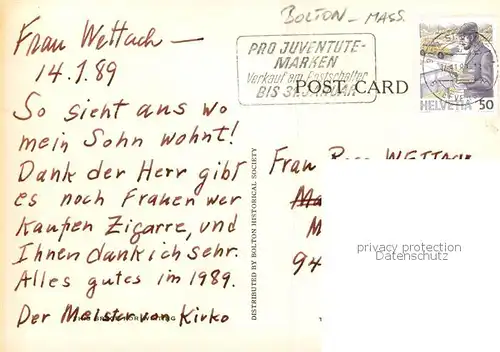 BOLTON - MASS.
Frau Wettach —
14.1.89
So sieht aus wo
mein Sohn wohnt!
Dank der Herr gibt
es noch Frauen wer
kaufen Zigarre, und
Ihnen dank ich sehr.
Alles gutes im 1989.
Der Meister von Kirko
PRO JUVENTUTE-
MARKEN
Verkauf am Postschalter
BIS 31. JANUAR
POST CARD
HELVETIA 50
DISTRIBUTED BY BOLTON HISTORICAL SOCIETY
Frau WETTACH
M
94
privacy protection
Datenschutz